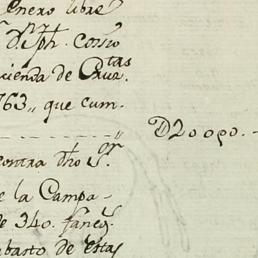 Enero libre
Dn. Jph. Corro
cienda de Cruztas
763,, que cum-
D20 090.-
contra dho Sor.
e la Campa-
de 340. faneg.
abasto de estas